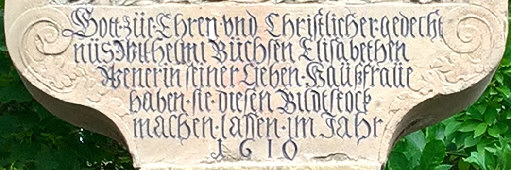 Gott·zŭr·Ehren·vnd Christlicher·gedecht
nŭs Wilhelmi Bŭchsen Elisabethen
Wener·in seiner Lieben·Haŭßfraŭe
haben·sie·diesen Bildtstock
machen·lassen·im Jahr
1610